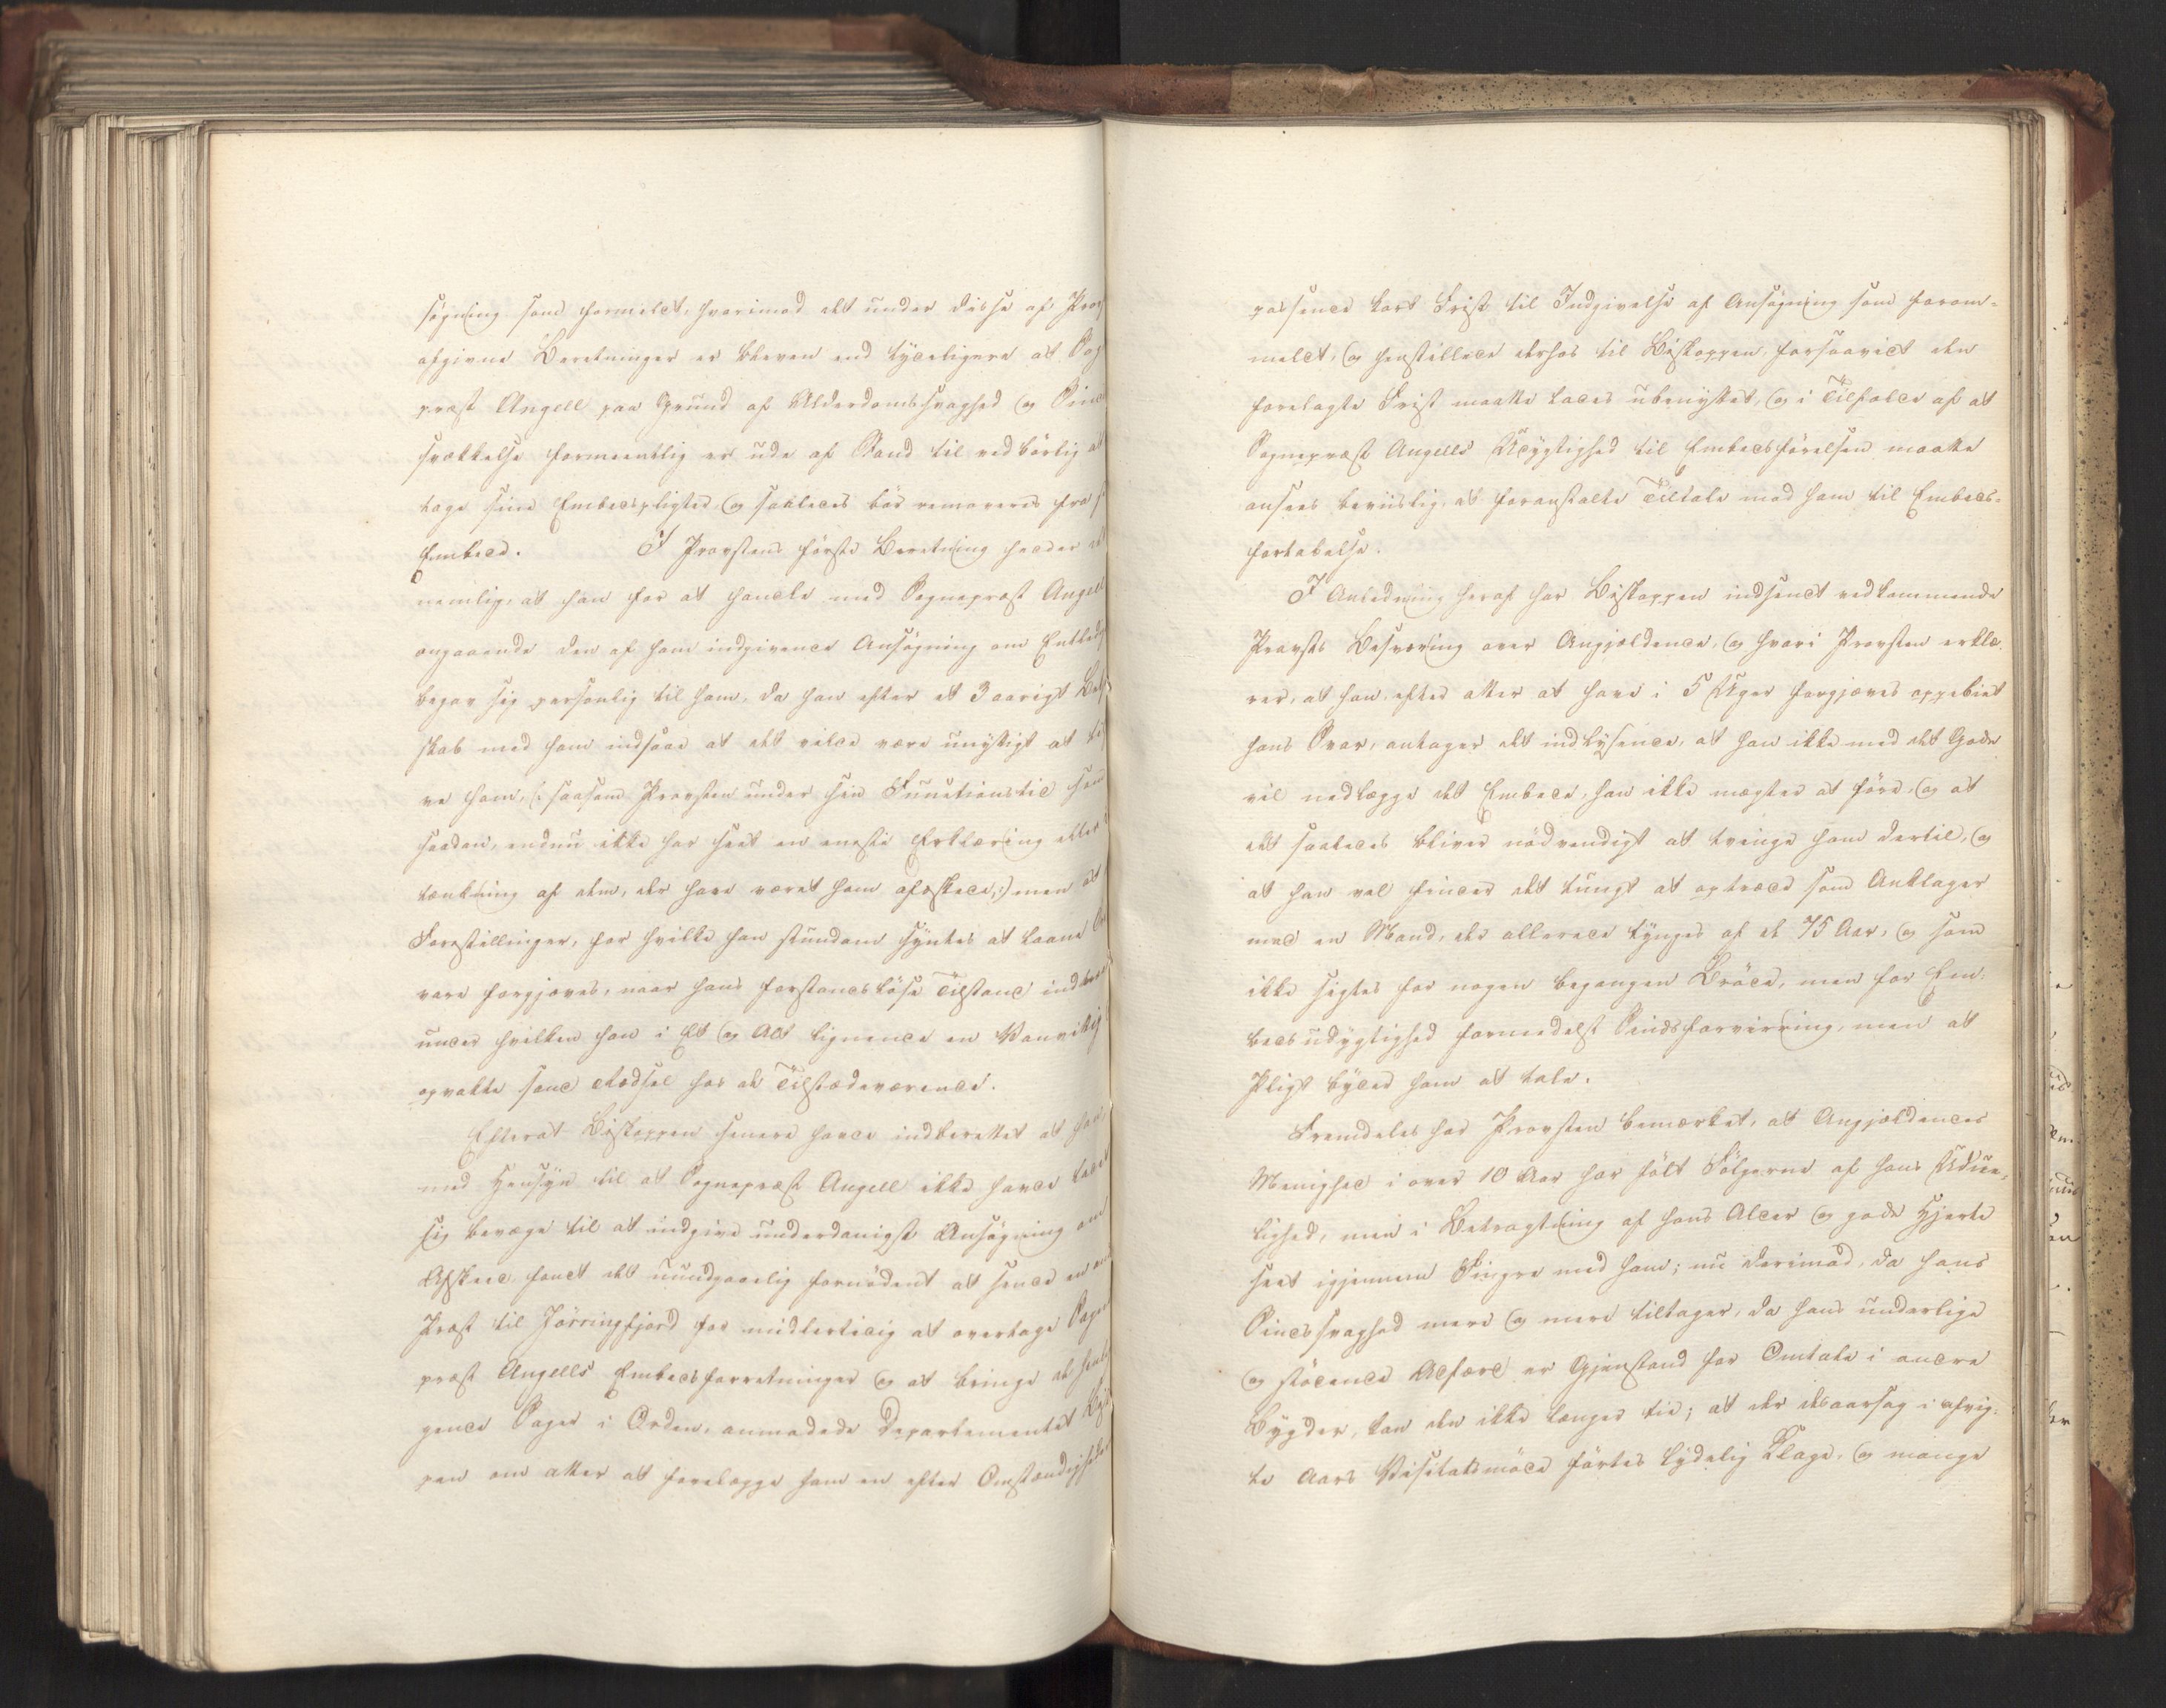 søgning som formeldt, hvorimod det under disse af Prov
afgivne Beretninger er bleven end tydeligere at Sog
præst Angell paa Grund af Alderdomssvaghed og Sind
svækkelse formeentlig er ude af Stand til vedbørlig at
tage sine Embedspligter, og saaledes bør removeres fra s
Embede. I Provstens første Beretning hedder det
nemlig, at han for at handle med Sognepræst Angell
angaaende den af ham indgivende Ansøgning om Entleds
begav sig personlig til ham, da han efter et 3 aarigt Be
skab med ham indsaae at det vilde være unyttigt at
ve ham, (: saasom Provsten under sin Functionstid som
saadan, endnu ikke har seet en eneste Erklæring eller
tænkning af dem, der have været ham afæskede,:) men at
Forestillinger, for hvilke han stundom syntes at laane
vare forgjæves, naar hans forstandsløse Tilstand ind
under hvilken han i Et og Alt lignende en Vanvittig
opvakte sand Rædsel hos de Tilstedeværende.
Efterat Biskoppen senere havde indberettet at han
med Hensyn til at Sognepræst Angell ikke havde ladet
sig bevæge til at indgive underdanigst Ansøgning om
Afskeed, fandt det uundgaaelig fornødent at sende en
Præst til Jørringfjord for midlertidig at overtage Sogne
præst Angells Embedsforretninger og at bringe de hen
gende Sager i Orden, anmodede Departementet Bis
pen om atter at forelægge ham en efter Omstændighede
passende kort Frist til Indgivelse af Ansøgning som forom=
meldt, og henstillede derhos til Biskoppen, forsaavidt den
forelagte Frist maatte lades ubenyttet, og i Tilfælde af at
Sognepræst Angells Udygtighed til Embedsførelsen maatte
ansees beviislig, at foranstalte Tiltale mod ham til Embeds=
fortabelse.
I Anledning heraf har Biskoppen indsendt vedkommende
Provsts Besværing over Angjældende, og hvori Provsten erklæ
rer, at han, efter atter at have i 5 Uger forgjæves oppebiet
hans Svar, antager det indlysende, at han ikke med det Gode
vil nedlægge det Embede, han ikke mægter at føre, og at
det saaledes bliver nødvendigt at tvinge ham dertil, og
at han vel finder det tungt at optræde som Anklager
mod en Mand, der allerede tynges af de 75 Aar, og som
ikke sigtes for nogen begangen Brøde, men for Em=
bedsudygtighed formedelst Sindsforvirring, men at
Pligt byder ham at tale.
Fremdeles har Provsten bemærket, at Angjældendes
Menighed i over 10 Aar har følt Følgerne af hans Udue=
lighed, men i Betragtning af hans Alder og gode Hjerte
seet igjennem Fingre med ham; nu derimod, da hans
Sindssvaghed mere og mere tiltager, da hans underlige
og stødende Adfærd er Gjenstand for Omtale i andre
Bygder, kan den ikke længer tie; at der desaarsag i afvig=
te Aars Visitatsmøde førtes lydelig Klage, og mange